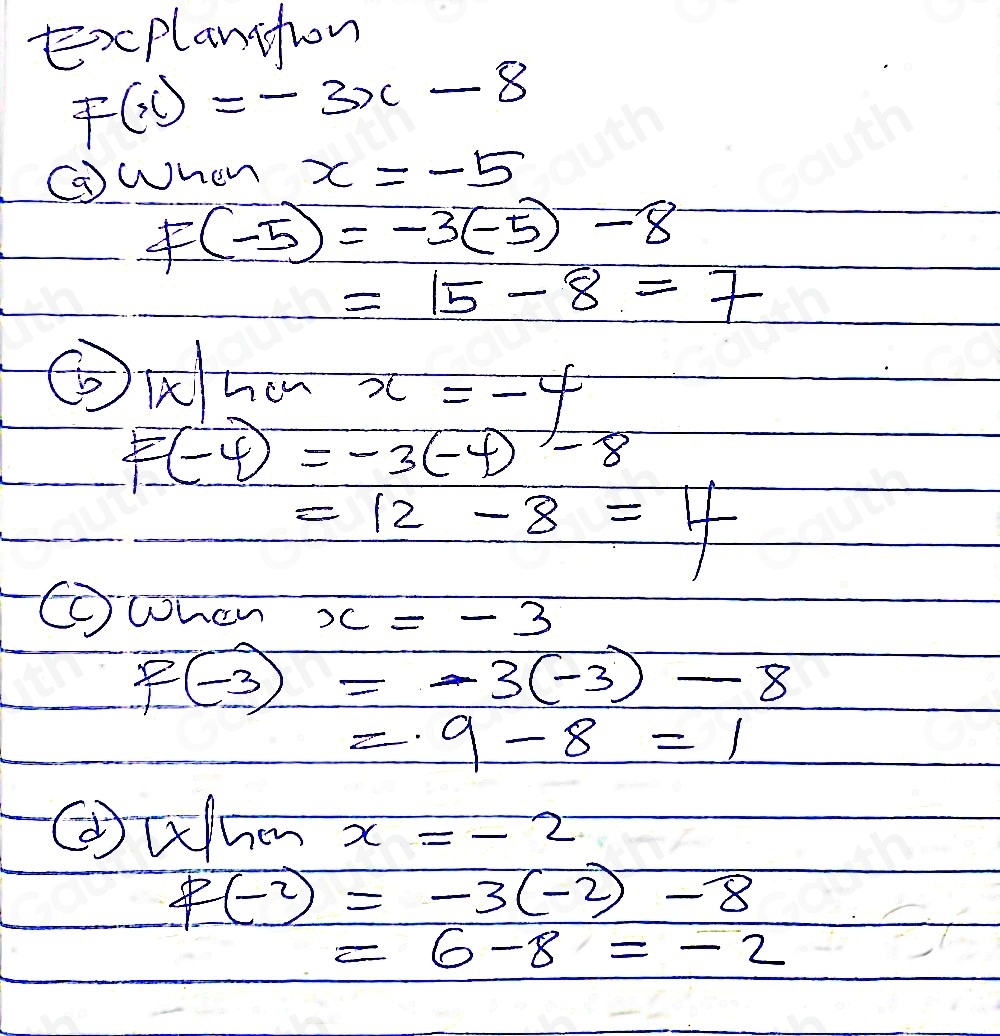 Explanation
F(x) = - 3x - 8
(a) When x = -5
F(-5) = -3(-5) - 8
= 15 - 8 = 7
(b) When x = -4
F(-4) = -3(-4) - 8
= 12 - 8 = 4
(c) When x = - 3
F(-3) = -3(-3) - 8
= 9 - 8 = 1
(d) When x = - 2
F(-2) = -3(-2) - 8
= 6 - 8 = - 2